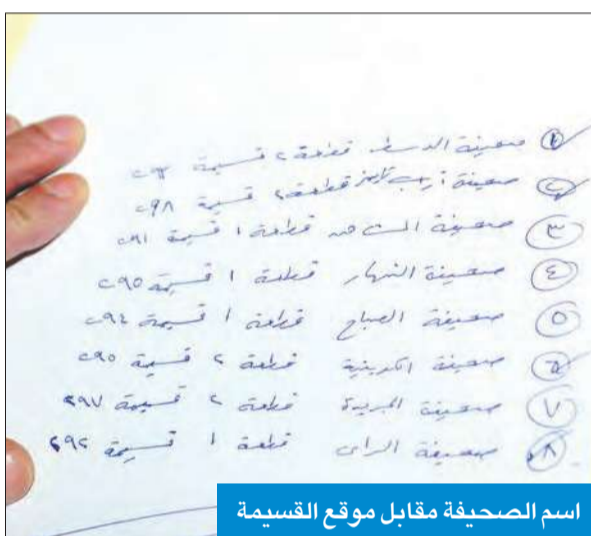 ① صحيفة الوسط قطعة ٢ قسيمة ٢٩٣
② صحيفة أرب تايمز قطعة ٢ قسيمة ٢٩٨
③ صحيفة الشاهد قطعة ١ قسيمة ٢٩١
④ صحيفة النهار قطعة ١ قسيمة ٢٩٥
⑤ صحيفة الصباح قطعة ١ قسيمة ٢٩٤
⑥ صحيفة الكويتية قطعة ٢ قسيمة ٢٩٥
⑦ صحيفة الجريدة قطعة ٢ قسيمة ٢٩٧
⑧ صحيفة الراي قطعة ١ قسيمة ٢٩٢
اسم الصحيفة مقابل موقع القسيمة